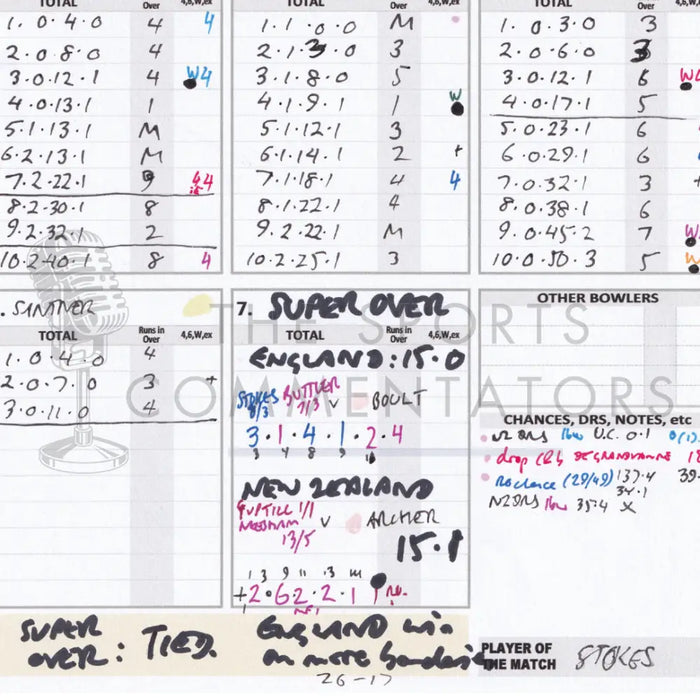 TOTAL Over 4,6,W,ex
1. 0. 4. 0 4 4
2. 0. 8. 0 4
3. 0. 12. 1 4 W4
4. 0. 13. 1 1
5. 1. 13. 1 M
6. 2. 13. 1 M
7. 2. 22. 1 9 44
8. 2. 30. 1 8
9. 2. 32. 1 2
10. 2. 40. 1 8 4
TOTAL Over 4,6,W,ex
1. 1. 0. 0 M
2. 1. 3. 0 3
3. 1. 8. 0 5
4. 1. 9. 1 1 W
5. 1. 12. 1 3
6. 1. 14. 1 2 +
7. 1. 18. 1 4 4
8. 1. 22. 1 4
9. 2. 22. 1 M
10. 2. 25. 1 3
TOTAL Over 4,6,W,ex
1. 0. 3. 0 3
2. 0. 6. 0 3
3. 0. 12. 1 6 W
4. 0. 17. 1 5
5. 0. 23. 1 6
6. 0. 29. 1 6
7. 0. 32. 1 3
8. 0. 38. 1 6
9. 0. 45. 2 7 W
10. 0. 50. 3 5 W
SANTNER
TOTAL Runs in Over 4,6,W,ex
1. 0. 4. 0 4
2. 0. 7. 0 3 +
3. 0. 11. 0 4
7. SUPER OVER
TOTAL Runs in Over 4,6,W,ex
ENGLAND: 15. 0
STOKES BUTTLER v BOULT
8/3 7/3
3. 1. 4. 1. 2. 4
3 4 8 9 11
NEW ZEALAND
GUPTILL 1/1
NEESHAM v ARCHER
13/5
15. 1
1 3 9 11 13 14
+ 2. 6 2. 2. 1 1 r.o.
OTHER BOWLERS
CHANCES, DRS, NOTES, etc
NZ DRS lbw U.C. 0.1
drop DE GRANDHOMME
(29/49) 137.4
34.1
NZ DRS lbw 35.4 x
THE SPORTS
COMMENTATORS
SUPER OVER: TIED.
ENGLAND win on more boundaries
26-17
PLAYER OF THE MATCH STOKES